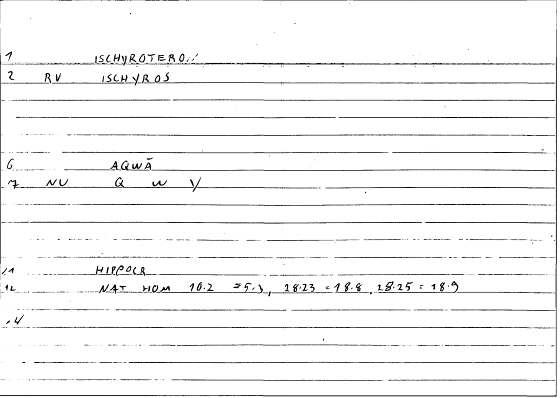 1 ISCHYROTERO
2 RV ISCHYROS
6 AQWĀ
7 NV Q W Y
11 HIPPOCR
12 NAT HOM 10.2 = 5.3, 18.23 = 18.8, 18.25 = 18.9
14